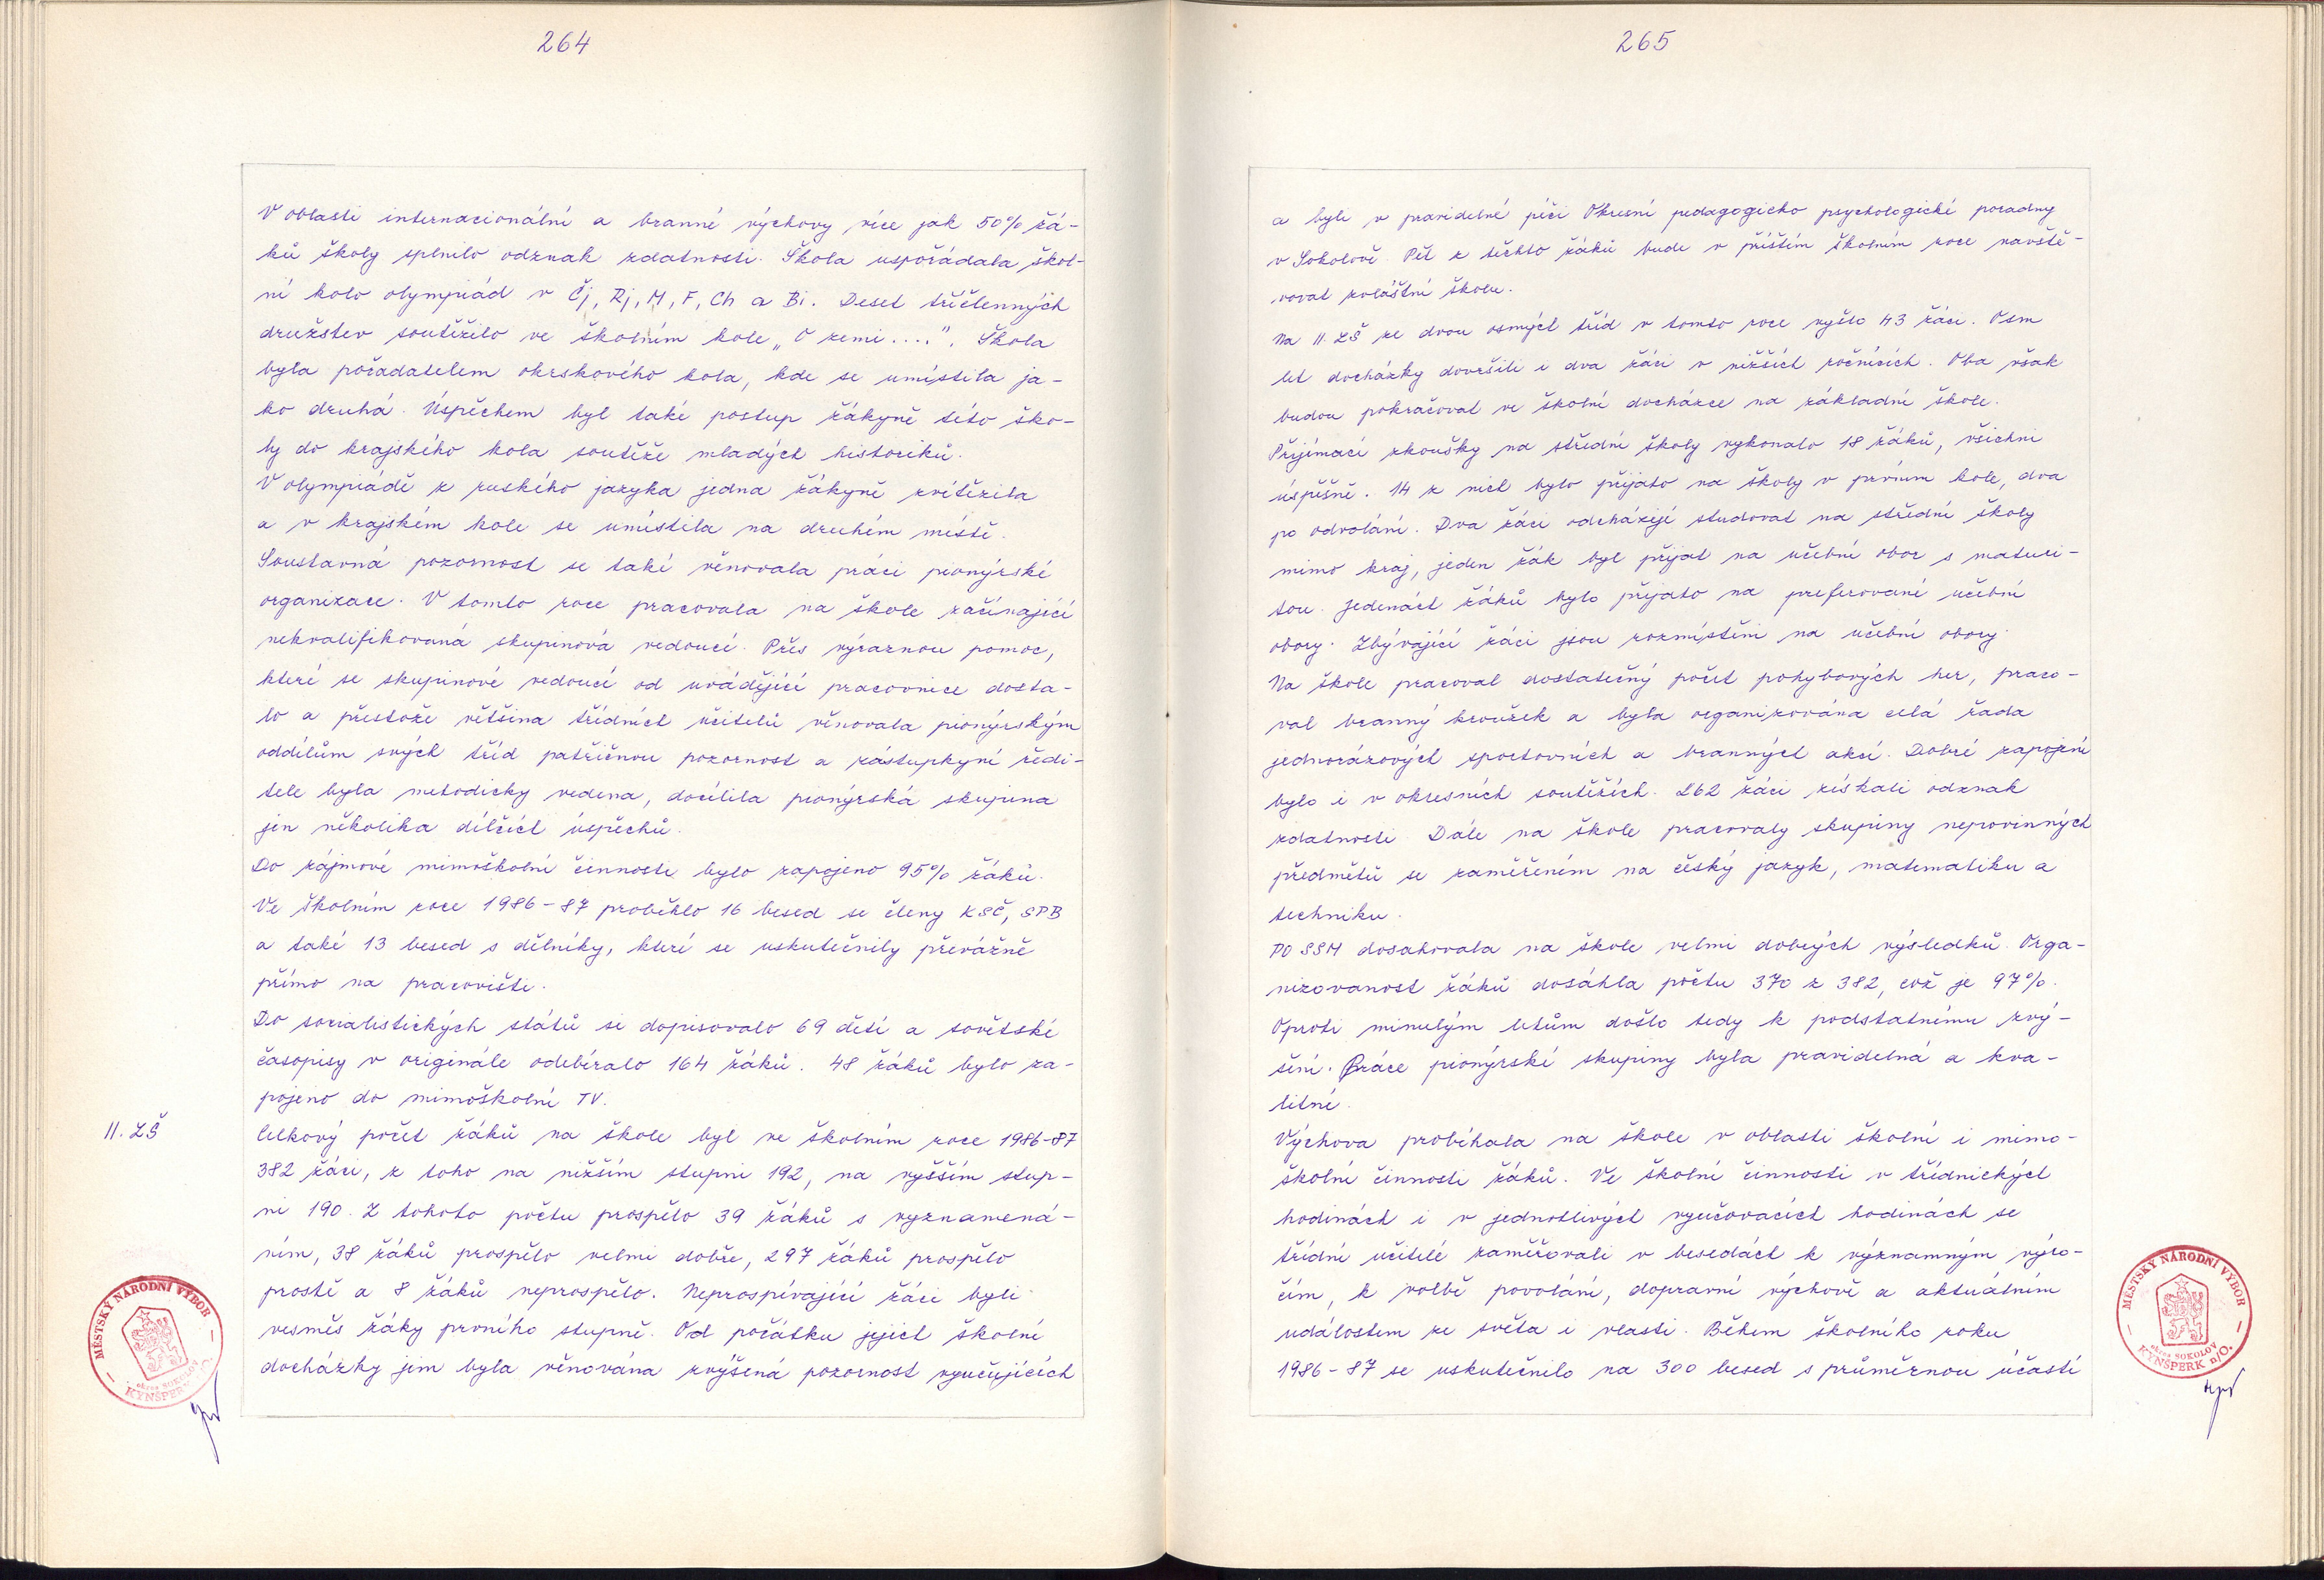 264
V oblasti internacionální a branné výchovy více jak 50% žá-
ků školy splnilo odznak zdatnosti. Škola uspořádala škol-
ní kolo olympiád v Čj, Rj, M, F, Ch a Bi. Deset tříčlenných
družstev soutěžilo ve školním kole „O zemi....". Škola
byla pořadatelem okrskového kola, kde se umístila ja-
ko druhá. Úspěchem byl také postup žákyně této ško-
ly do krajského kola soutěže mladých historiků.
V olympiádě z ruského jazyka jedna žákyně zvítězila
a v krajském kole se umístila na druhém místě.
Soustavná pozornost se také věnovala práci pionýrské
organizace. V tomto roce pracovala na škole začínající
nekvalifikovaná skupinová vedoucí. Přes výraznou pomoc,
které se skupinové vedoucí od uvádějící pracovnice dosta-
lo a přestože většina třídních učitelů věnovala pionýrským
oddílům svých tříd patřičnou pozornost a zástupkyní ředi-
tele byla metodicky vedena, docílila pionýrská skupina
jen několika dílčích úspěchů.
Do zájmové mimoškolní činnosti bylo zapojeno 95% žáků.
Ve školním roce 1986-87 proběhlo 16 besed se členy KSČ, SPB
a také 13 besed s dělníky, které se uskutečnily převážně
přímo na pracovišti.
Do socialistických států si dopisovalo 69 dětí a sovětské
časopisy v originále odebíralo 164 žáků. 48 žáků bylo za-
pojeno do mimoškolní TV.
II. ZŠ
Celkový počet žáků na škole byl ve školním roce 1986-87
382 žáci, z toho na nižším stupni 192, na vyšším stup-
ni 190. Z tohoto počtu prospělo 39 žáků s vyznamená-
ním, 38 žáků prospělo velmi dobře, 297 žáků prospělo
prostě a 8 žáků neprospělo. Neprospívající žáci byli
vesměs žáky prvního stupně. Od počátku jejich školní
docházky jim byla věnována zvýšená pozornost vyučujících
MĚSTSKÝ NÁRODNÍ VÝBOR
okres SOKOLOV
KYNŠPERK n/O.
265
a byli v pravidelné péči Okresní pedagogicko psychologické poradny
v Sokolově. Pět z těchto žáků bude v příštím školním roce navště-
vovat zvláštní školu.
Na II. ZŠ ze dvou osmých tříd v tomto roce vyšlo 43 žáci. Osm
let docházky dovršili i dva žáci v nižších ročnících. Oba však
budou pokračovat ve školní docházce na základní škole.
Přijímací zkoušky na střední školy vykonalo 18 žáků, všichni
úspěšně. 14 z nich bylo přijato na školy v prvním kole, dva
po odvolání. Dva žáci odcházejí studovat na střední školy
mimo kraj, jeden žák byl přijat na učební obor s maturi-
tou. Jedenáct žáků bylo přijato na preferované učební
obory. Zbývající žáci jsou rozmístěni na učební obory.
Na škole pracoval dostatečný počet pohybových her, praco-
val branný kroužek a byla organizována celá řada
jednorázových sportovních a branných akcí. Dobré zapojení
bylo i v okresních soutěžích. 262 žáci získali odznak
zdatnosti. Dále na škole pracovaly skupiny nepovinných
předmětů se zaměřením na český jazyk, matematiku a
techniku.
PO SSM dosahovala na škole velmi dobrých výsledků. Orga-
nizovanost žáků dosáhla počtu 370 z 382, což je 97%.
Oproti minulým letům došlo tedy k podstatnému zvý-
šení. Práce pionýrské skupiny byla pravidelná a kva-
litní.
Výchova probíhala na škole v oblasti školní i mimo-
školní činnosti žáků. Ve školní činnosti v třídnických
hodinách i v jednotlivých vyučovacích hodinách se
třídní učitelé zaměřovali v besedách k významným výro-
čím, k volbě povolání, dopravní výchově a aktuálním
událostem ze světa i vlasti. Během školního roku
1986-87 se uskutečnilo na 300 besed s průměrnou účastí
MĚSTSKÝ NÁRODNÍ VÝBOR
okres SOKOLOV
KYNŠPERK n/O.